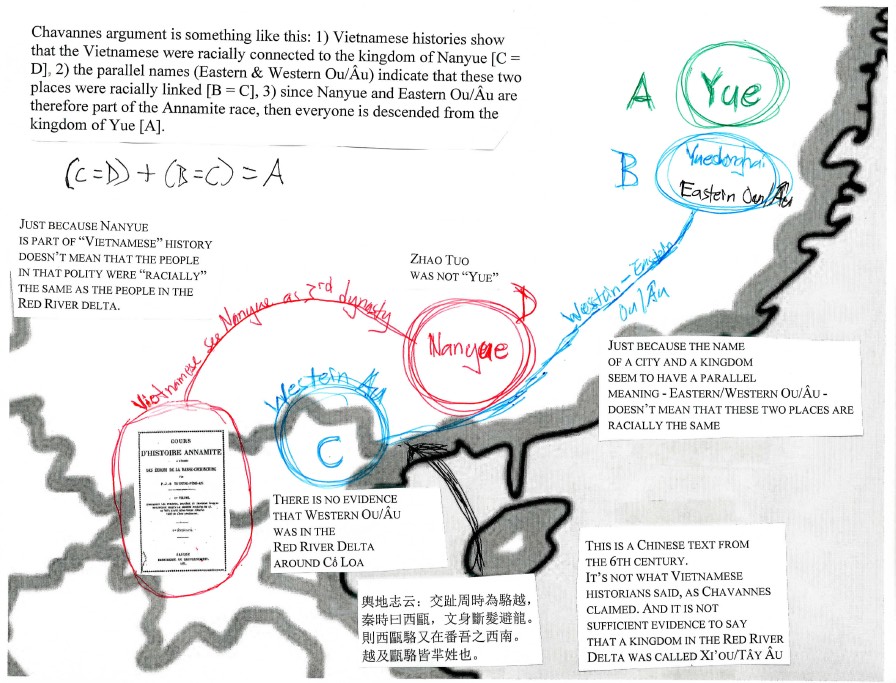 Chavannes argument is something like this: 1) Vietnamese histories show
that the Vietnamese were racially connected to the kingdom of Nanyue [C =
D], 2) the parallel names (Eastern & Western Ou/Âu) indicate that these two
places were racially linked [B = C], 3) since Nanyue and Eastern Ou/Âu are
therefore part of the Annamite race, then everyone is descended from the
kingdom of Yue [A].
(C=D) + (B=C) = A
A
Yue
B
Yuedonghai
Eastern Ou/Âu
JUST BECAUSE NANYUE
IS PART OF "VIETNAMESE" HISTORY
DOESN'T MEAN THAT THE PEOPLE
IN THAT POLITY WERE "RACIALLY"
THE SAME AS THE PEOPLE IN THE
RED RIVER DELTA.
ZHAO TUO
WAS NOT "YUE"
Western-Eastern
Ou/Âu
Vietnamese see Nanyue as 3rd dynasty
D
Nanyue
JUST BECAUSE THE NAME
OF A CITY AND A KINGDOM
SEEM TO HAVE A PARALLEL
MEANING - EASTERN/WESTERN OU/ÂU -
DOESN'T MEAN THAT THESE TWO PLACES ARE
RACIALLY THE SAME
Western Au
C
COURS
D'HISTOIRE ANNAMITE
DES ÉCOLES DE LA BASSE-COCHINCHINE
THERE IS NO EVIDENCE
THAT WESTERN OU/ÂU
WAS IN THE
RED RIVER DELTA
AROUND CỔ LOA
輿地志云：交趾周時為駱越，
秦時曰西甌，文身斷髮避龍。
則西甌駱又在番吾之西南。
越及甌駱皆羋姓也。
THIS IS A CHINESE TEXT FROM
THE 6TH CENTURY.
IT'S NOT WHAT VIETNAMESE
HISTORIANS SAID, AS CHAVANNES
CLAIMED. AND IT IS NOT
SUFFICIENT EVIDENCE TO SAY
THAT A KINGDOM IN THE RED RIVER
DELTA WAS CALLED XI'OU/TÂY ÂU